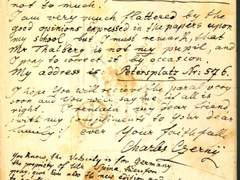 not to much!
I am very much flattered by the
good opinions expressed in the papers upon
my school, but I must remark, that
Mr Thalberg is not my pupil, and
I pray to correct it by occasion.
My address is: Petersplatz No. 576.
I hope You will receive the parcel very
soon and You will pay me
I remain, my dear friend
with my compliments to Your dear
family! ever Your faithfull
Charles Czerny
You know, the Velocity is for Germany
the propriety of Mr Spina, therefore
the new edition